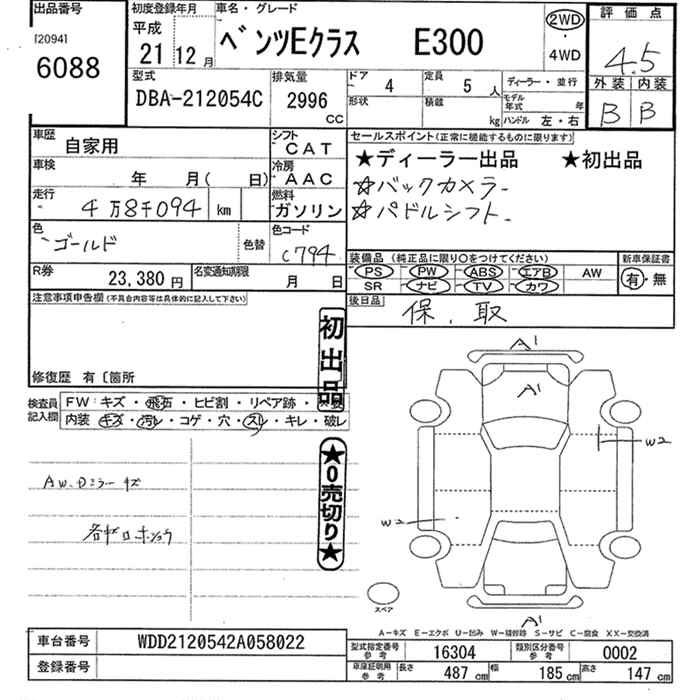 出品番号 初度登録年月 車名・グレード 評価点
[2094] 平成 ベンツEクラス E300 2WD 4.5
6088 21 12月 4WD
型式 排気量 ドア 4 定員 5人 ディーラー・並行 外装 内装
DBA-212054C 2996 CC 形状 積載 kg モデル年式 年 ハンドル 左・右 B B
車歴 自家用 シフト CAT セールスポイント(正常に機能するものに限ります)
車検 年 月( 日) 冷房 AAC ★ディーラー出品 ★初出品
走行 4万8千094 km 燃料 ガソリン ☆バックカメラー
☆パドルシフト
色 ゴールド 色替 色コード C794
装備品(純正品に限り○をつけてください) 新車保証書
R券 23,380円 名変通知期限 月 日 PS PW ABS エアB AW 有・無
SR ナビ TV カワ
注意事項申告欄(不具合内容等は具体的に記入して下さい) 後日品 保、取
初出品
修復歴 有〔箇所
検査員記入欄 FW:キズ・飛石・ヒビ割・リペア跡・
内装 キズ・汚レ・コゲ・穴・スレ・キレ・破レ
A1
A1
W2
AW、Dミラーキズ
★0売切り★
W2
スペア
A1
A-キズ E-エクボ U-凹み W-補修跡 S-サビ C-腐食 XX-交換済
車台番号 WDD2120542A058022 型式指定番号 参考 16304 類別区分番号 参考 0002
登録番号 車庫証明用 参考 長さ 487cm 幅 185cm 高さ 147cm